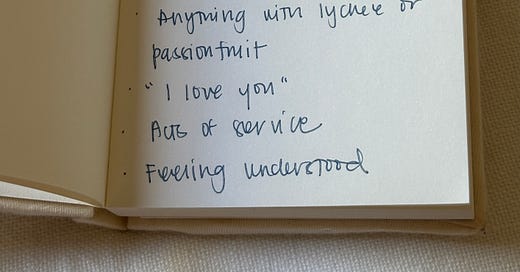 · Anything with lychee or
passionfruit
· "I love you"
· Acts of service
· Feeling understood